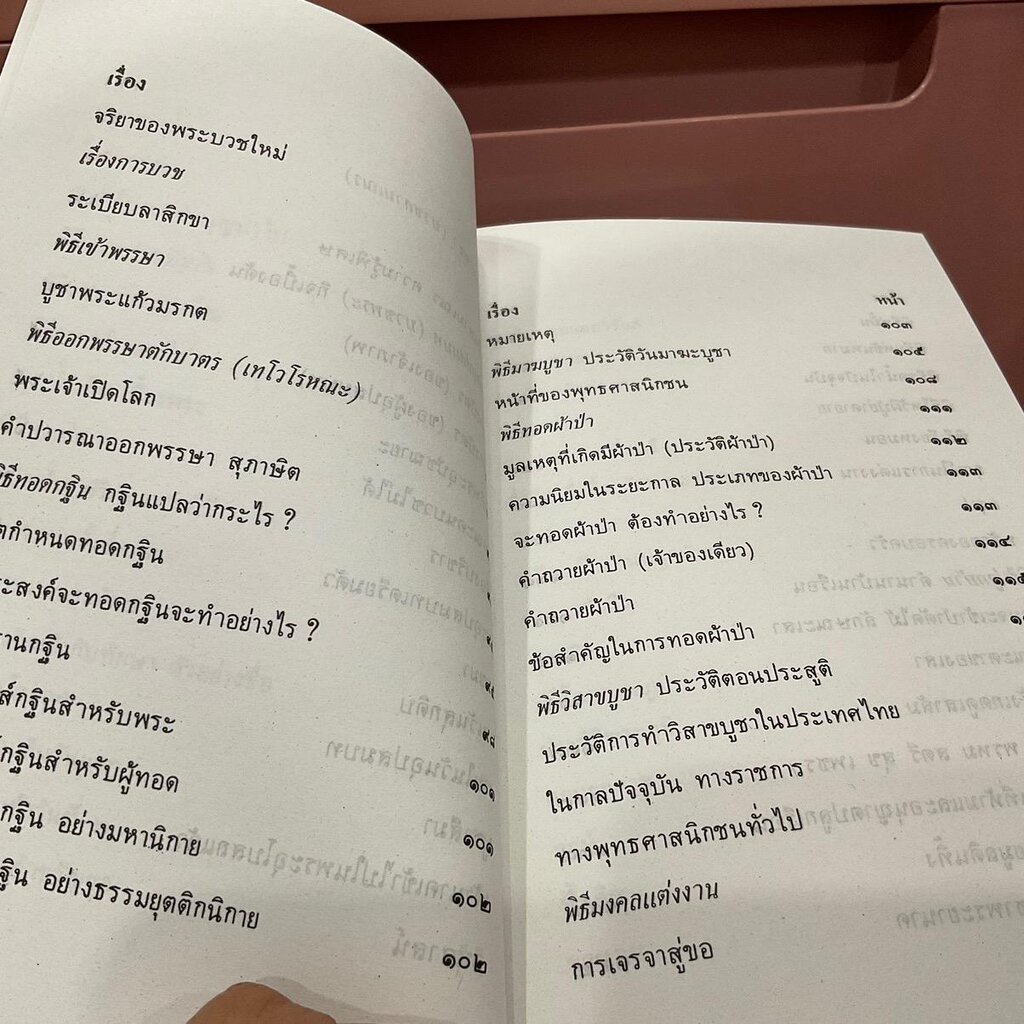 เรื่อง
จริยาของพระบวชใหม่
เรื่องการบวช
ระเบียบลาสิกขา
พิธีเข้าพรรษา
บูชาพระแก้วมรกต
พิธีออกพรรษาตักบาตร (เทโวโรหณะ)
พระเจ้าเปิดโลก
คำปวารณาออกพรรษา สุภาษิต
กฐินแปลว่ากระไร ?
กำหนดทอดกฐิน
จะทอดกฐินจะทำอย่างไร ?
กฐิน
กฐินสำหรับพระ
กฐินสำหรับผู้ทอด ๑๐๑
กฐิน อย่างมหานิกาย ๑๐๒
อย่างธรรมยุตติกนิกาย ๑๐๒
เรื่อง หน้า
หมายเหตุ ๑๐๓
พิธีมาฆบูชา ประวัติวันมาฆะบูชา ๑๐๕
หน้าที่ของพุทธศาสนิกชน ๑๐๘
พิธีทอดผ้าป่า ๑๑๑
มูลเหตุที่เกิดมีผ้าป่า (ประวัติผ้าป่า) ๑๑๒
ความนิยมในระยะกาล ประเภทของผ้าป่า ๑๑๓
จะทอดผ้าป่า ต้องทำอย่างไร ? ๑๑๓
คำถวายผ้าป่า (เจ้าของเดียว) ๑๑๔
คำถวายผ้าป่า ๑๑๕
ข้อสำคัญในการทอดผ้าป่า
พิธีวิสาขบูชา ประวัติตอนประสูติ
ประวัติการทำวิสาขบูชาในประเทศไทย
ในกาลปัจจุบัน ทางราชการ
ทางพุทธศาสนิกชนทั่วไป
พิธีมงคลแต่งงาน
การเจรจาสู่ขอ